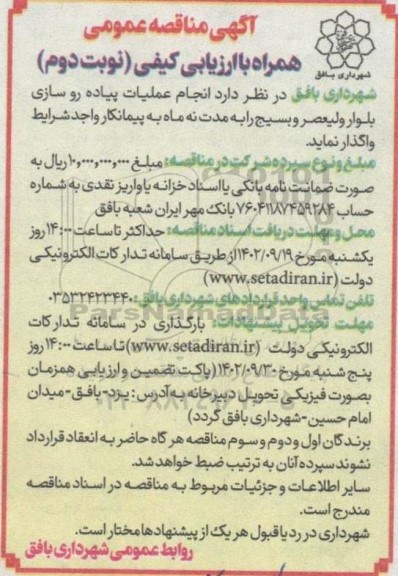 آگهی مناقصه عمومی
همراه با ارزیابی کیفی (نوبت دوم)
شهرداری بافق
شهرداری بافق در نظر دارد انجام عملیات پیاده رو سازی
بلوار ولیعصر و بسیج را به مدت نه ماه به پیمانکار واجد شرایط
واگذار نماید.
مبلغ و نوع سپرده شرکت در مناقصه: مبلغ ۱۰,۰۰۰,۰۰۰,۰۰۰ ریال به
صورت ضمانت نامه بانکی یا اسناد خزانه یا واریز نقدی به شماره
حساب ۷۶۰۴۱۱۸۷۴۵۹۲۸۴ بانک مهر ایران شعبه بافق
محل و مهلت دریافت اسناد مناقصه: حداکثر تا ساعت ۱۴:۰۰ روز
یکشنبه مورخ ۱۴۰۲/۰۹/۱۹ از طریق سامانه تدارکات الکترونیکی
دولت (www.setadiran.ir)
تلفن تماس واحد قراردادهای شهرداری بافق: ۰۳۵۳۲۴۲۳۴۴۰
ParsNamadData
مهلت تحویل پیشنهادات: بارگذاری در سامانه تدارکات
الکترونیکی دولت (www.setadiran.ir) تا ساعت ۱۴:۰۰ روز
پنج شنبه مورخ ۱۴۰۲/۰۹/۳۰ (پاکت تضمین و ارزیابی همزمان
بصورت فیزیکی تحویل دبیرخانه به آدرس: یزد-بافق-میدان
امام حسین-شهرداری بافق گردد)
برندگان اول و دوم و سوم مناقصه هر گاه حاضر به انعقاد قرارداد
نشوند سپرده آنان به ترتیب ضبط خواهد شد.
سایر اطلاعات و جزئیات مربوط به مناقصه در اسناد مناقصه
مندرج است.
شهرداری در رد یا قبول هر یک از پیشنهادها مختار است.
روابط عمومی شهرداری بافق